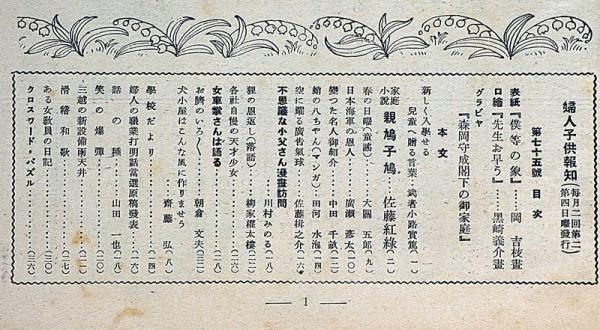 婦人子供報知(毎月二回第二第四日曜發行)
第七十五號 目次
表紙『僕等の象』……岡 吉枝畫
口繪『先生お早う』……黑崎義介畫
グラビヤ
『森岡守成閣下の御家庭』
本文
新しく入學せる
兒童へ贈る言葉 武者小路實篤(一)
家庭小說 親鳩子鳩……佐藤紅綠(二)
春の日曜(童謠)……大關 五郎(九)
日本海軍の恩人……廣瀨 彥太(一〇)
變つた名人御紹介……中田 千畝(一二)
蛸の八ちやん(マンガ)…田河 水泡(一四)
空に躍る廣告氣球……佐藤 〓之介(一六)
不思議な小父さん漫畫訪問
……川村みのる(一八)
狸の恩返し(落語)……柳家權太樓(二〇)
各社自慢の天才少女
女車掌さんは語る
お臍のいろ〳〵……朝倉 文夫(二三)
犬小屋はこんな風に作りませう
……齋藤 弘(八)
學校だより……(一四)
婦人の職業打明話當選原稿發表…(一八)
話の種……山田 一也(一八)
三越の新設備南天井……(二〇)
笑の爆彈……(二〇)
滑稽和歌……(二七)
ある女敎員の日記……(三六)
クロスワード・パズル……(三六)
1